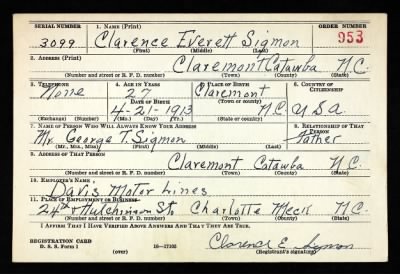 SERIAL NUMBER 1. NAME (Print) ORDER NUMBER
3099 Clarence Everett Sigmon 953
(First) (Middle) (Last)
2. ADDRESS (Print)
Claremont Catawba N.C.
(Number and street or R. F. D. number) (Town) (County) (State)
3. TELEPHONE 4. AGE IN YEARS 5. PLACE OF BIRTH 6. COUNTRY OF CITIZENSHIP
None 27 Claremont
DATE OF BIRTH (Town or county)
4-21-1913 N.C. USA
(Exchange) (Number) (Mo.) (Day) (Yr.) (State or country)
7. NAME OF PERSON WHO WILL ALWAYS KNOW YOUR ADDRESS 8. RELATIONSHIP OF THAT PERSON
Mr. George T. Sigmon Father
(Mr., Mrs., Miss) (First) (Middle) (Last)
9. ADDRESS OF THAT PERSON
Claremont Catawba N.C.
(Number and street or R. F. D. number) (Town) (County) (State)
10. EMPLOYER'S NAME
Davis Motor Lines
11. PLACE OF EMPLOYMENT OR BUSINESS
24th & Hutchinson St. Charlotte Meck N.C.
(Number and street or R. F. D. number) (Town) (County) (State)
I AFFIRM THAT I HAVE VERIFIED ABOVE ANSWERS AND THAT THEY ARE TRUE.
REGISTRATION CARD
D. S. S. Form 1 16-17105 Clarence E. Sigmon
(over) (Registrant's signature)